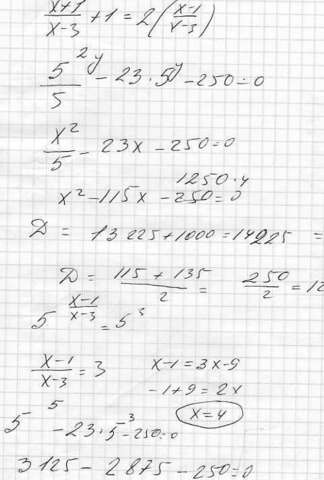 x+1/x-3 + 1 = 2(x-1/x-3)
5^2y/5 - 23·5^y - 250=0
x^2/5 - 23x - 250=0
1250·4
x^2-115x - 250=0
D = 13225+1000=14225 =
D = 115+135/2 = 250/2 = 12
5^x-1/x-3 = 5^3
x-1/x-3 = 3 x-1=3x-9
-1+9=2x
x=4
5^5 - 23·5^3 - 250=0
3125 - 2875 - 250=0